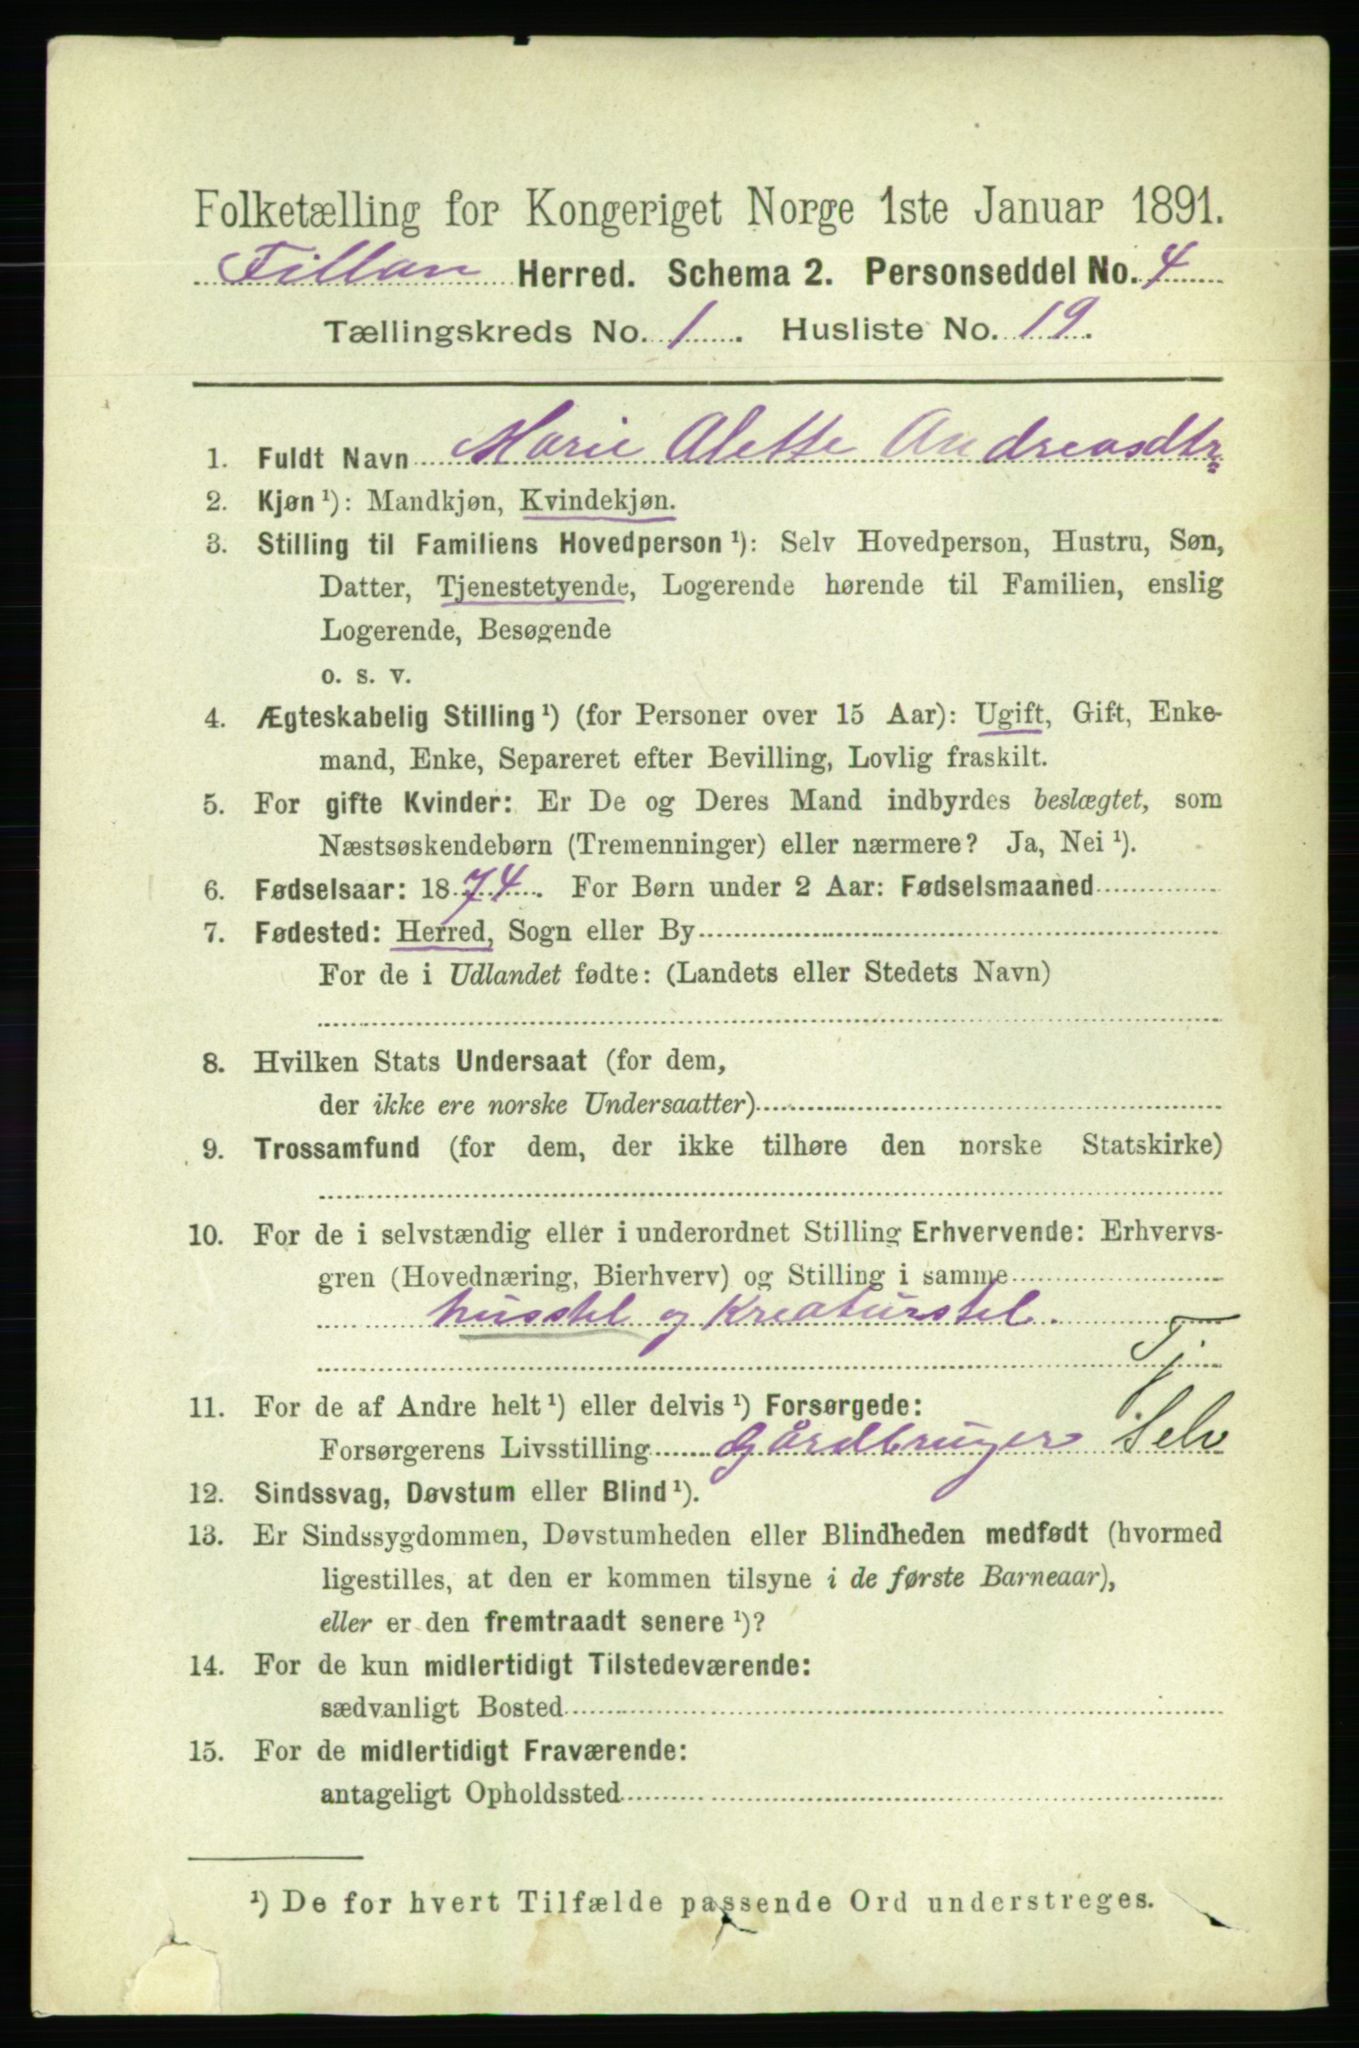 Folketælling for Kongeriget Norge 1ste Januar 1891.
Fillan Herred. Schema 2. Personseddel No. 4
Tællingskreds No. 1. Husliste No. 19.
1. Fuldt Navn Marie Alette Andreasdtr
2. Kjøn ¹): Mandkjøn, Kvindekjøn.
3. Stilling til Familiens Hovedperson ¹): Selv Hovedperson, Hustru, Søn,
Datter, Tjenestetyende, Logerende hørende til Familien, enslig
Logerende, Besøgende
o. s. v.
4. Ægteskabelig Stilling ¹) (for Personer over 15 Aar): Ugift, Gift, Enke-
mand, Enke, Separeret efter Bevilling, Lovlig fraskilt.
5. For gifte Kvinder: Er De og Deres Mand indbyrdes beslægtet, som
Næstsøskendebørn (Tremenninger) eller nærmere? Ja, Nei ¹).
6. Fødselsaar: 1874. For Børn under 2 Aar: Fødselsmaaned
7. Fødested: Herred, Sogn eller By
For de i Udlandet fødte: (Landets eller Stedets Navn)
8. Hvilken Stats Undersaat (for dem,
der ikke ere norske Undersaatter)
9. Trossamfund (for dem, der ikke tilhøre den norske Statskirke)
10. For de i selvstændig eller i underordnet Stilling Erhvervende: Erhvervs-
gren (Hovednæring, Bierhverv) og Stilling i samme
husstel og Kreaturstel.
Tj
11. For de af Andre helt ¹) eller delvis ¹) Forsørgede:
Forsørgerens Livsstilling Gårdbruger Selv
12. Sindssvag, Døvstum eller Blind ¹).
13. Er Sindssygdommen, Døvstumheden eller Blindheden medfødt (hvormed
ligestilles, at den er kommen tilsyne i de første Barneaar),
eller er den fremtraadt senere ¹)?
14. For de kun midlertidigt Tilstedeværende:
sædvanligt Bosted
15. For de midlertidigt Fraværende:
antageligt Opholdssted
¹) De for hvert Tilfælde passende Ord understreges.